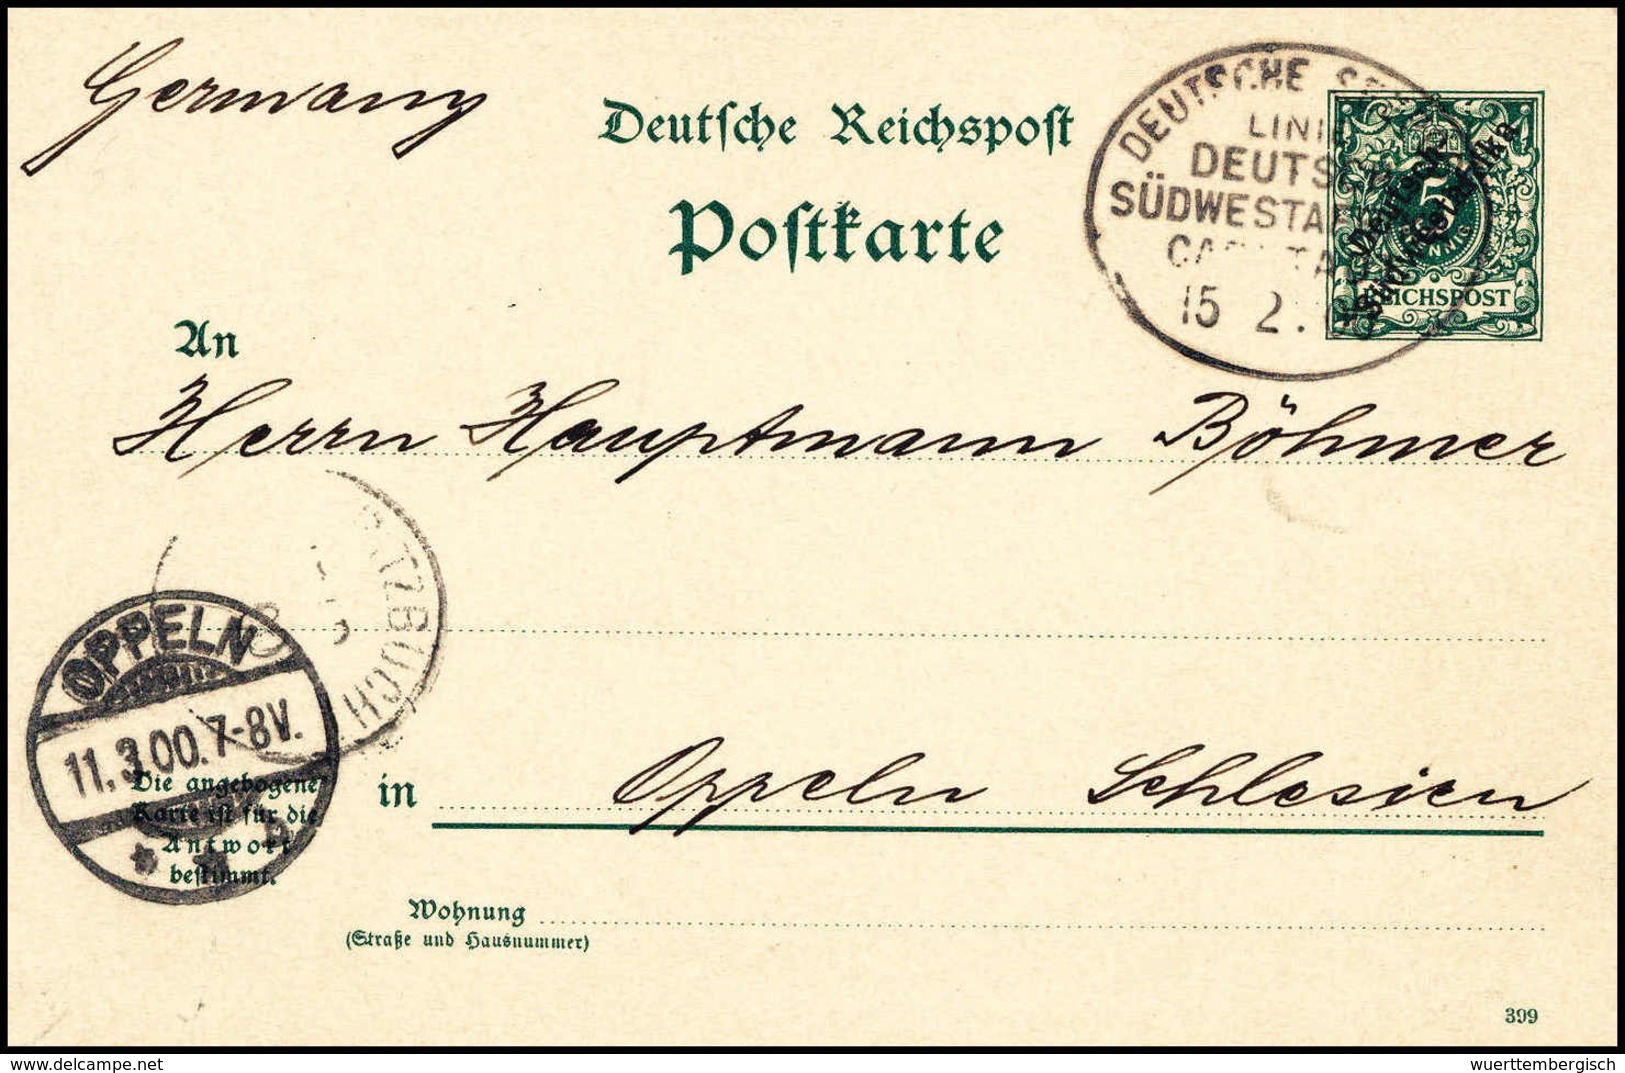 Germany
Deutsche Reichspost
Postkarte
DEUTSCHE
LINIE
DEUTSCH
SÜDWESTAFRIKA
15 2.
5
REICHSPOST
Deutsch-
Südwest-Afrika
An
Herrn Hauptmann Böhmer
OPPELN
11.3.00.7-8V.
Die angebogene
Karte ist für die
Antwort
bestimmt.
in Oppeln Schlesien
Wohnung
(Straße und Hausnummer)
399
delcampe.net
wuerttembergisch